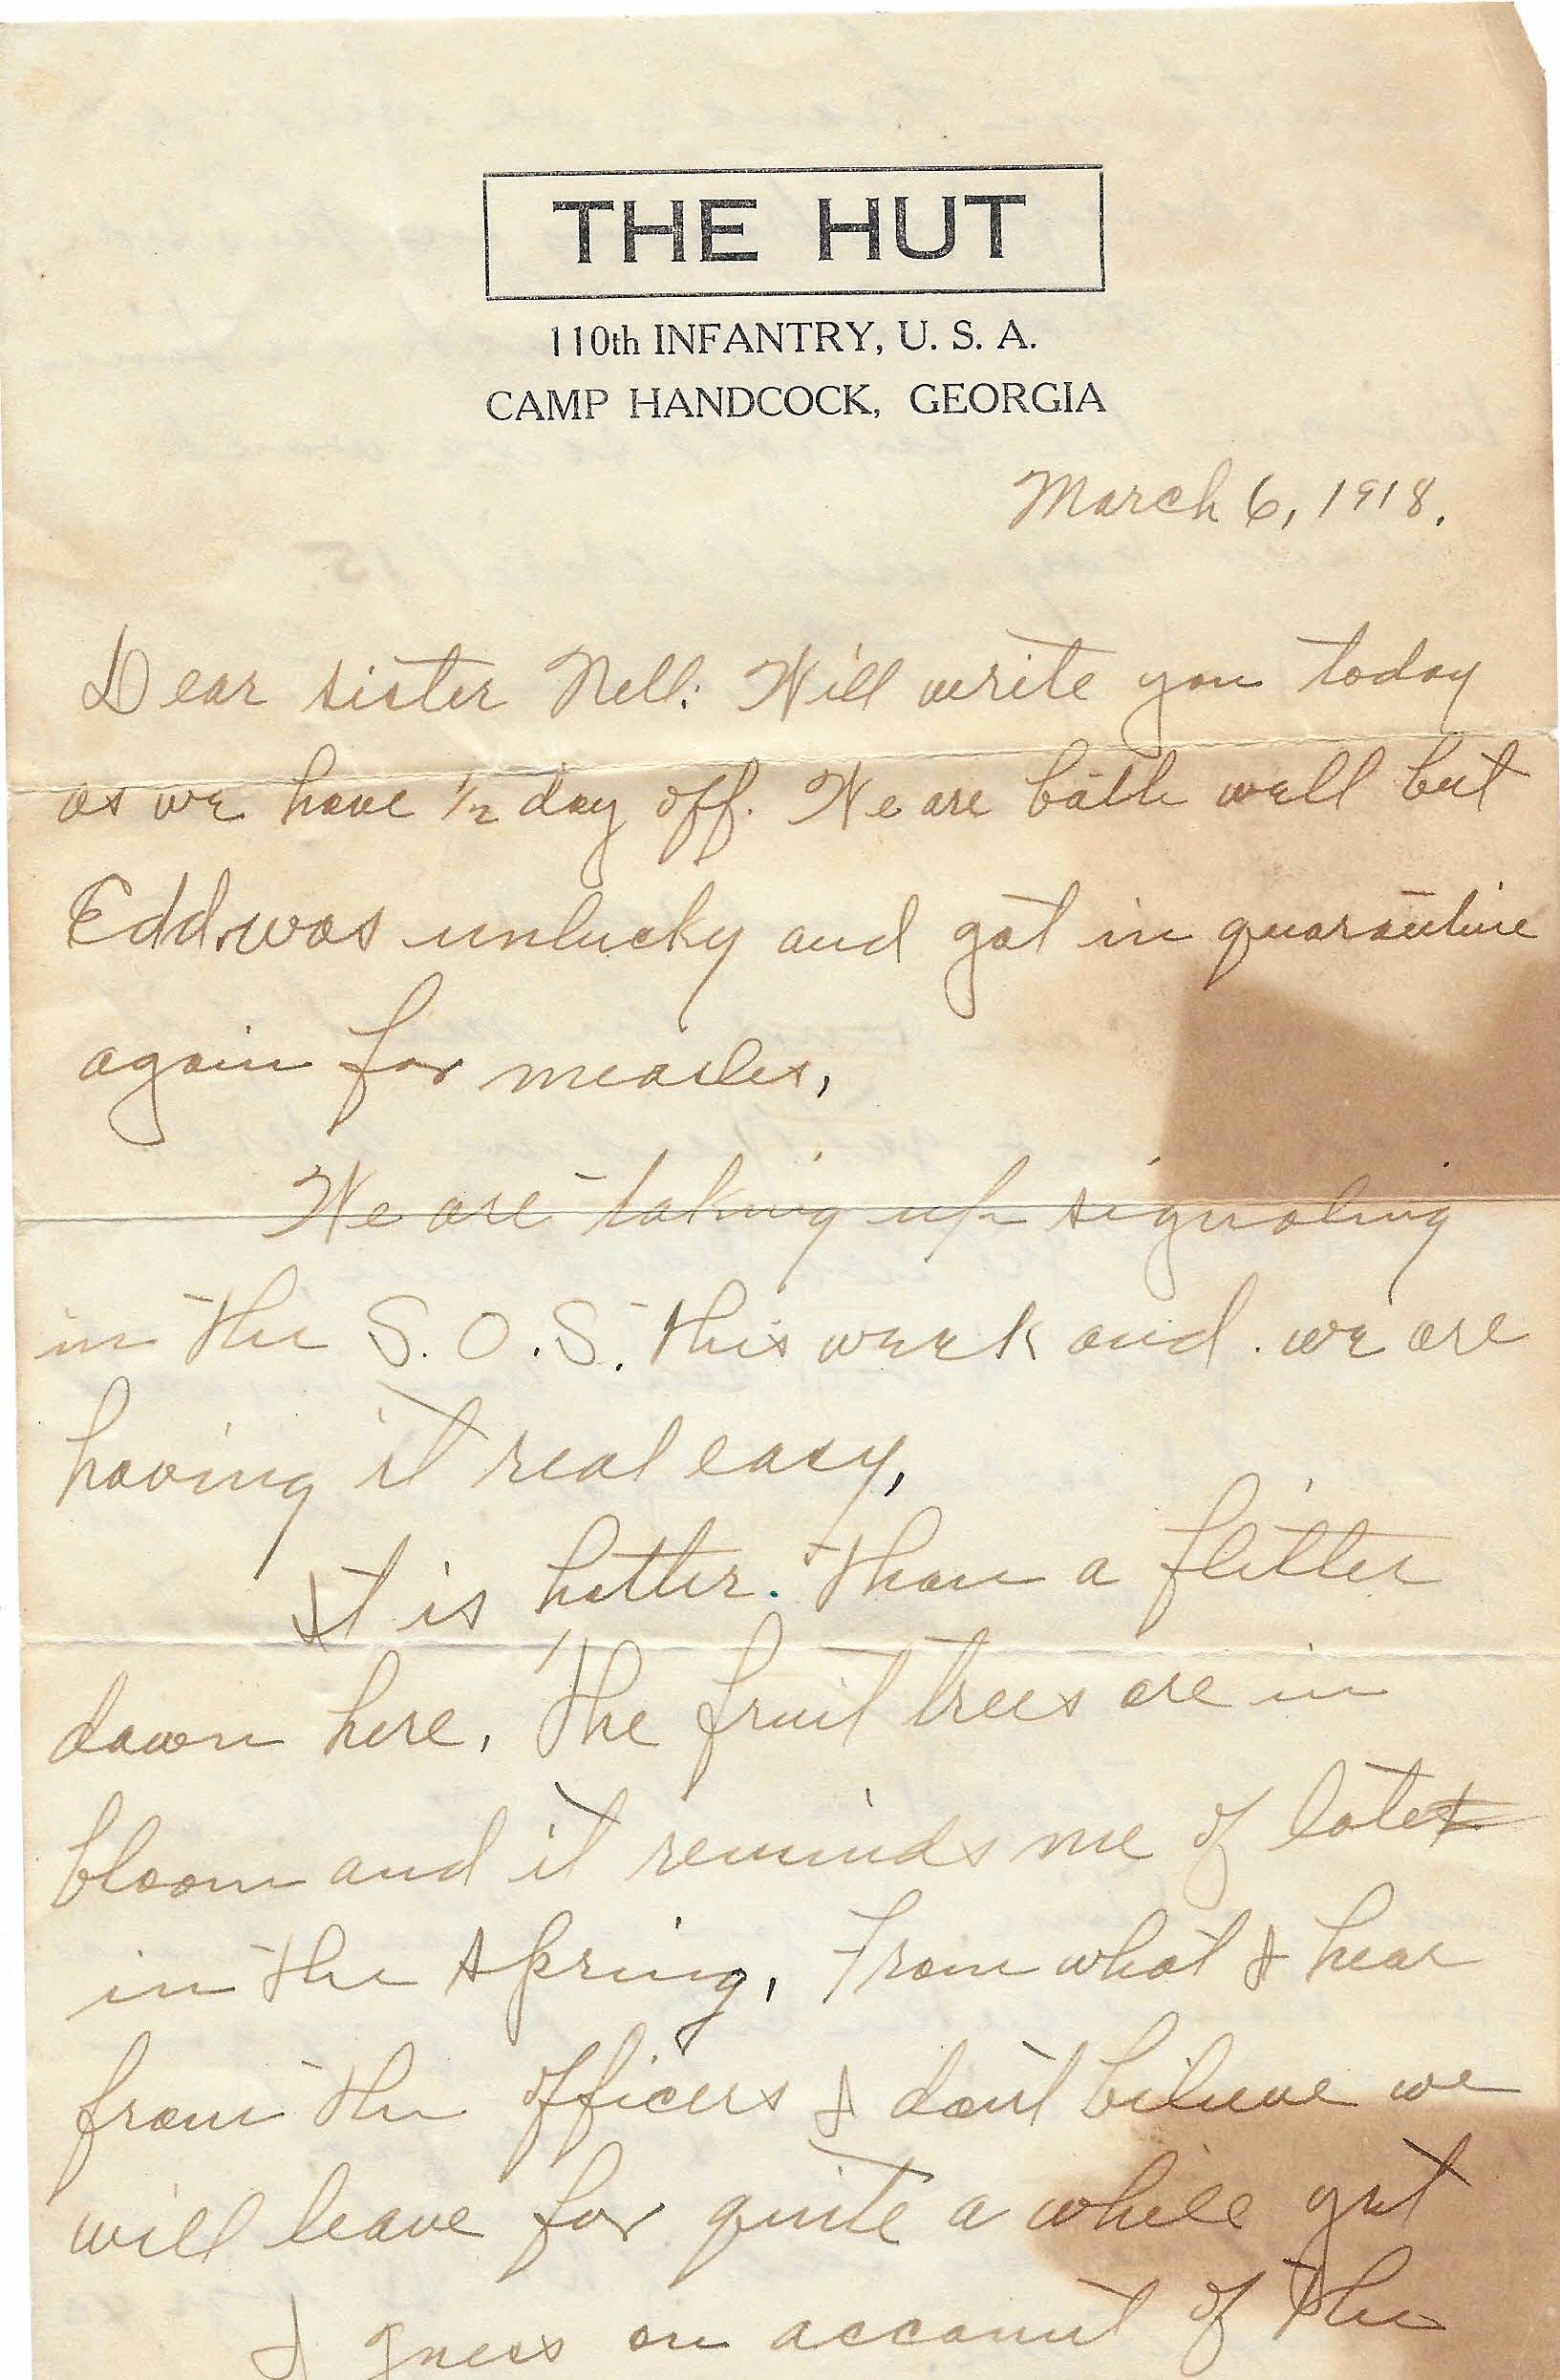 THE HUT
110th INFANTRY, U. S. A.
CAMP HANDCOCK, GEORGIA
March 6, 1918.
Dear sister Nell: Will write you today
as we have 1/2 day off. We are both well but
Edd. was unlucky and got in quarantine
again for measles,
We are taking up signaling
in the S. O. S. this week and . we are
having it real easy,
It is hotter. than a flitter
down here, The fruit trees are in
bloom and it reminds me of late
in the spring, From what I hear
from the officers I don't believe we
will leave for quite a while yet
I guess on account of the